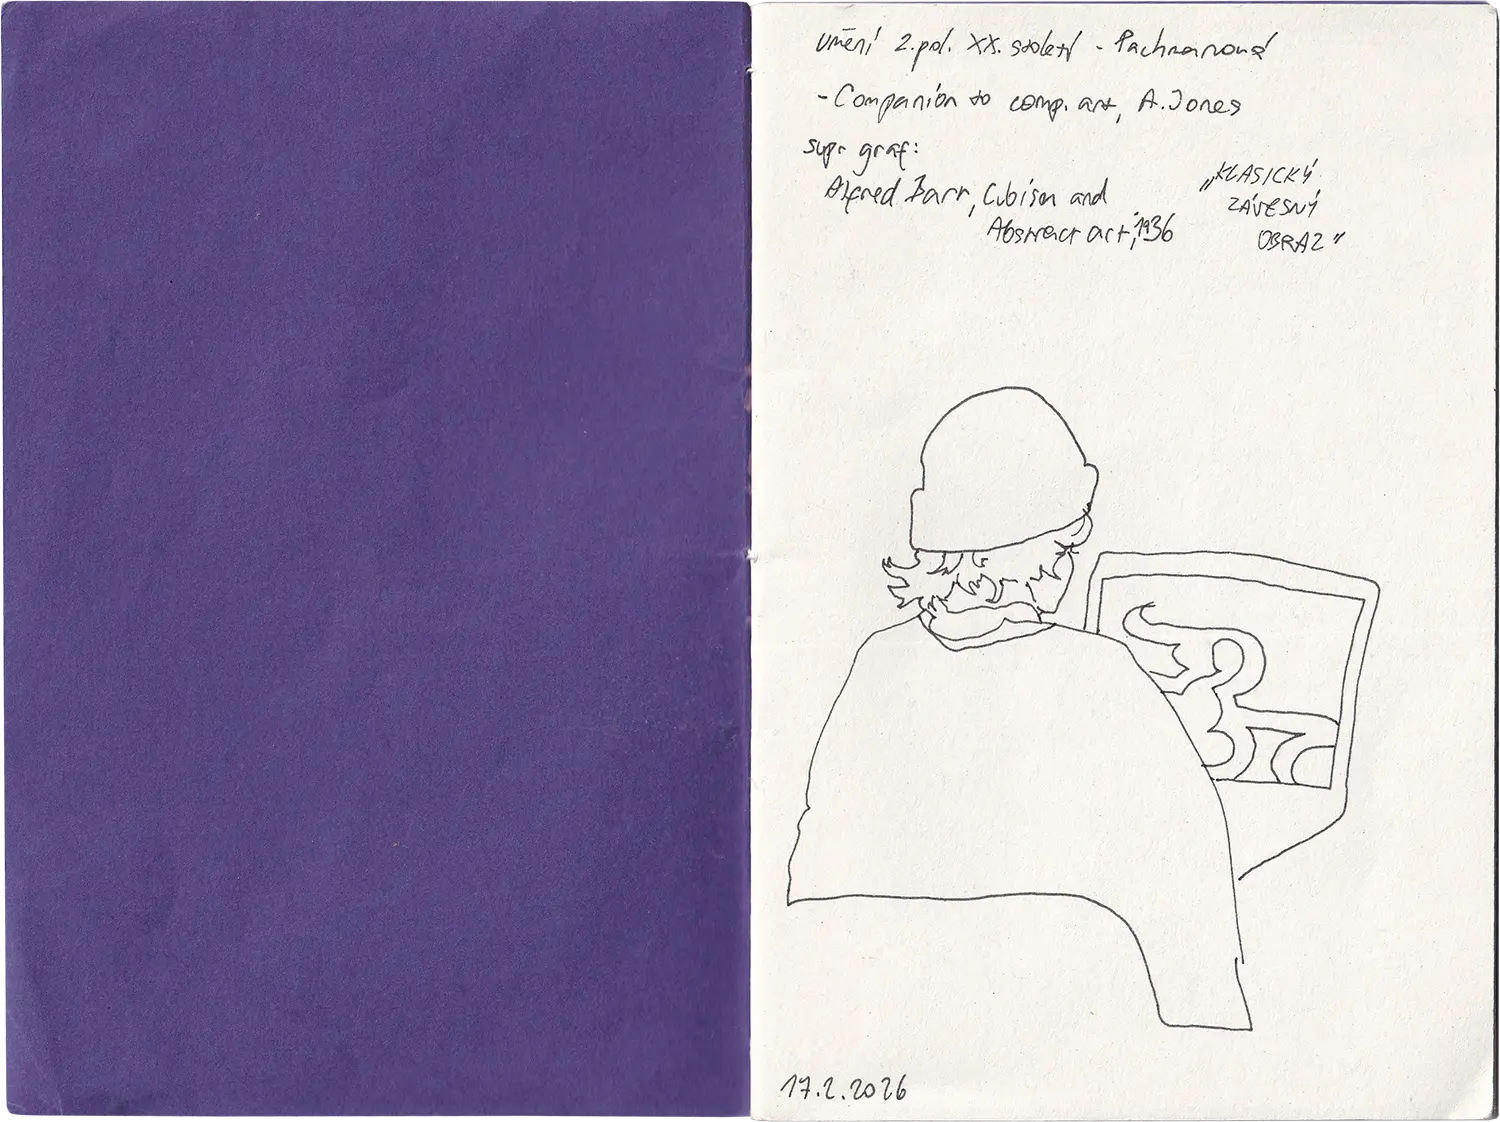 Umění 2.pol. XX. století - Pachmanová
- Companion to comp. art, A. Jones
supr graf:
Alfred Barr, Cubism and
Abstract art, 1936
„KLASICKÝ
ZÁVĚSNÝ
OBRAZ"
17.2.2026